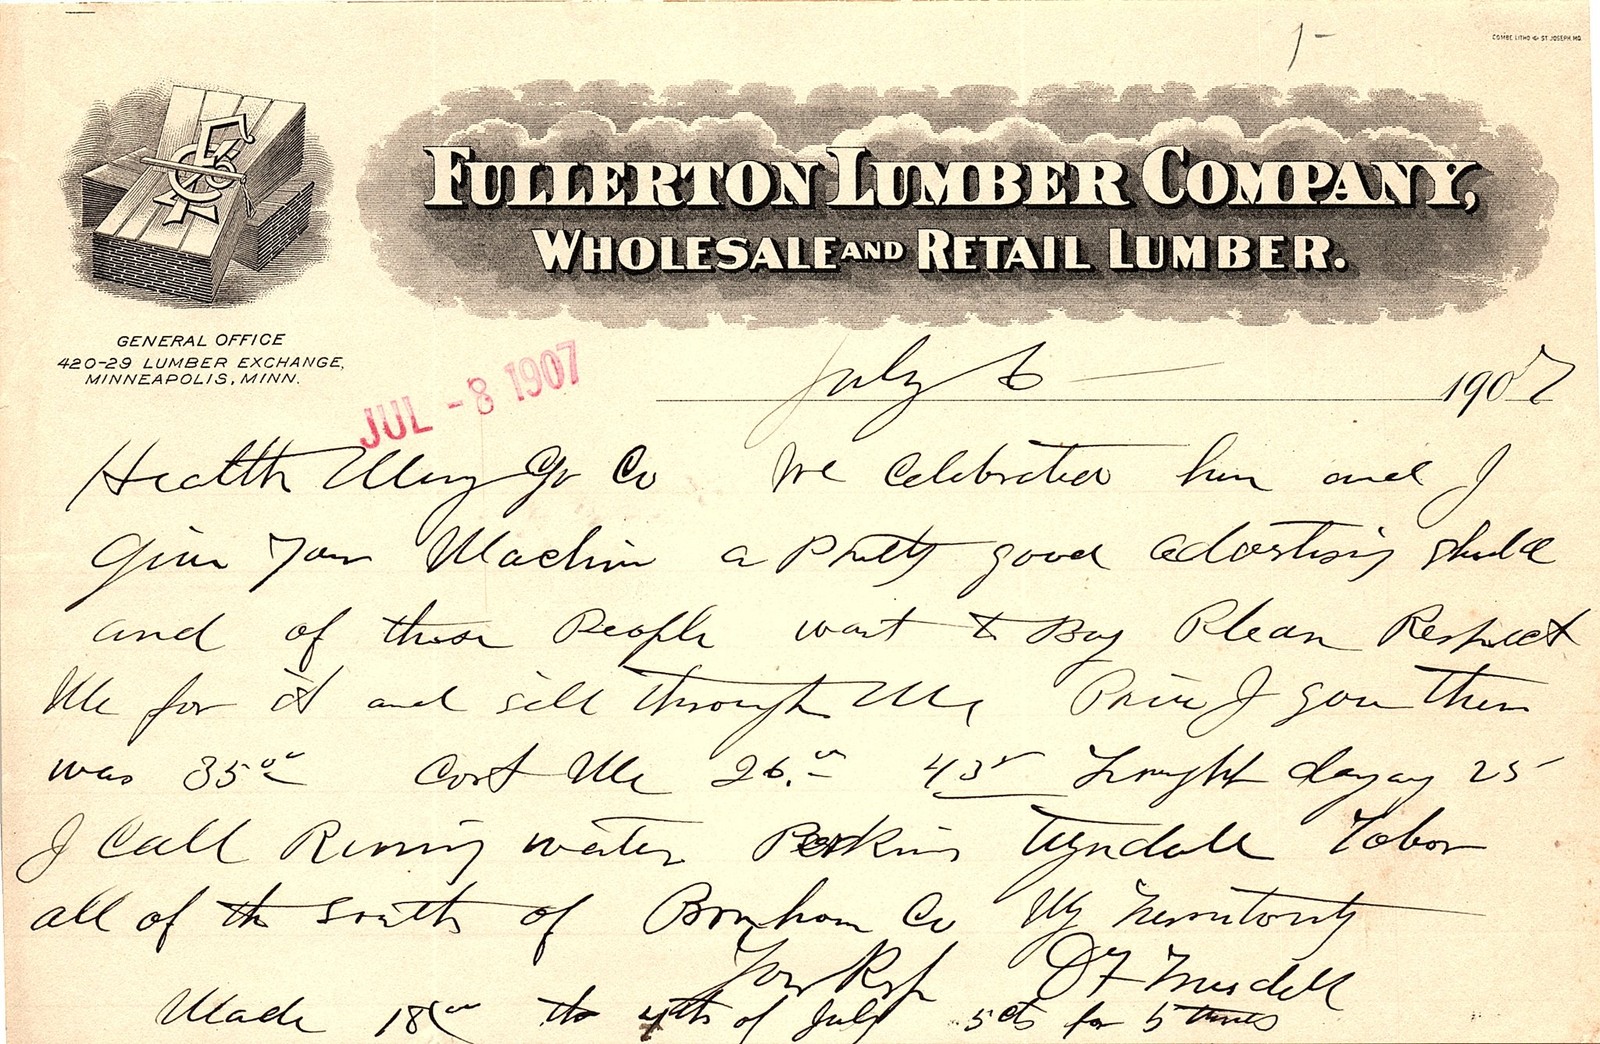 1-
COMBE LITHO Co ST. JOSEPH MO
FULLERTON LUMBER COMPANY,
WHOLESALE AND RETAIL LUMBER.
GENERAL OFFICE
420-29 LUMBER EXCHANGE,
MINNEAPOLIS, MINN.
JUL -8 1907
July 6 1907
Health Merry Go Co We Celebrated here and I
Give Your Machine a Pretty good advertising
and of these People want to Buy Please Respect
Me for it and sell through Me, Price I gave them
was 35.00 Cost Me 26.00 4 35 25
I Call Running water Perkins Tyndall Tabor
all of the South of Bonhom Co My Territory
Your Resp D F
Made 18.00 the 4th of July 5cts for 5 times